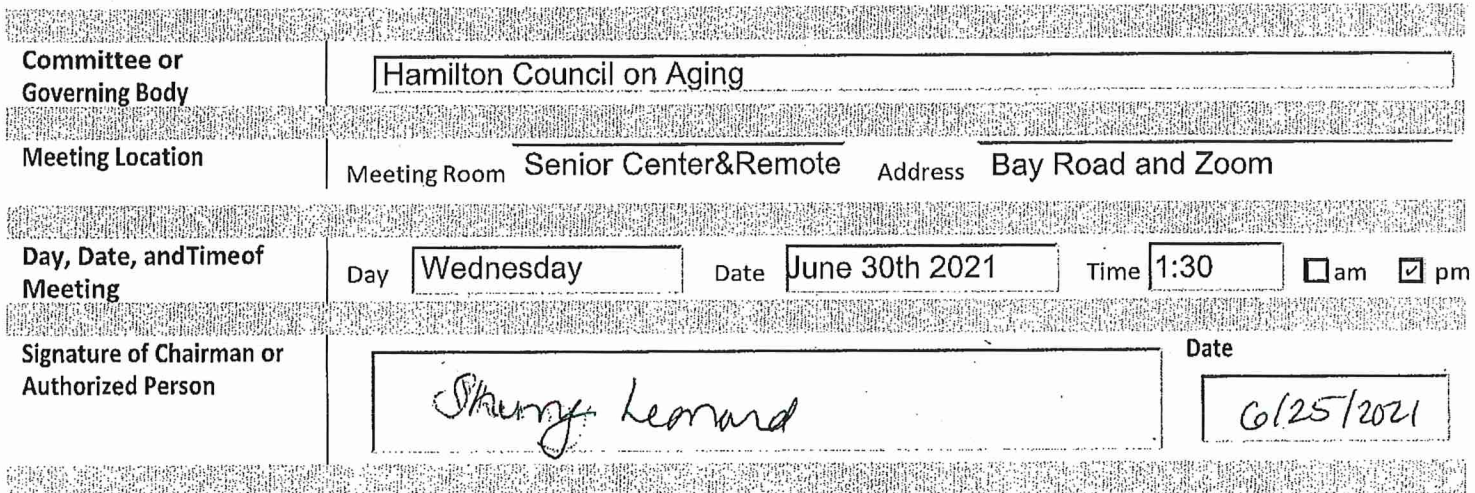 Committee or
Governing Body
Hamilton Council on Aging
Meeting Location
Meeting Room Senior Center&Remote Address Bay Road and Zoom
Day, Date, andTimeof
Meeting
Day Wednesday Date June 30th 2021 Time 1:30 am pm
Signature of Chairman or
Authorized Person
Leonard
Date
6/25/2021